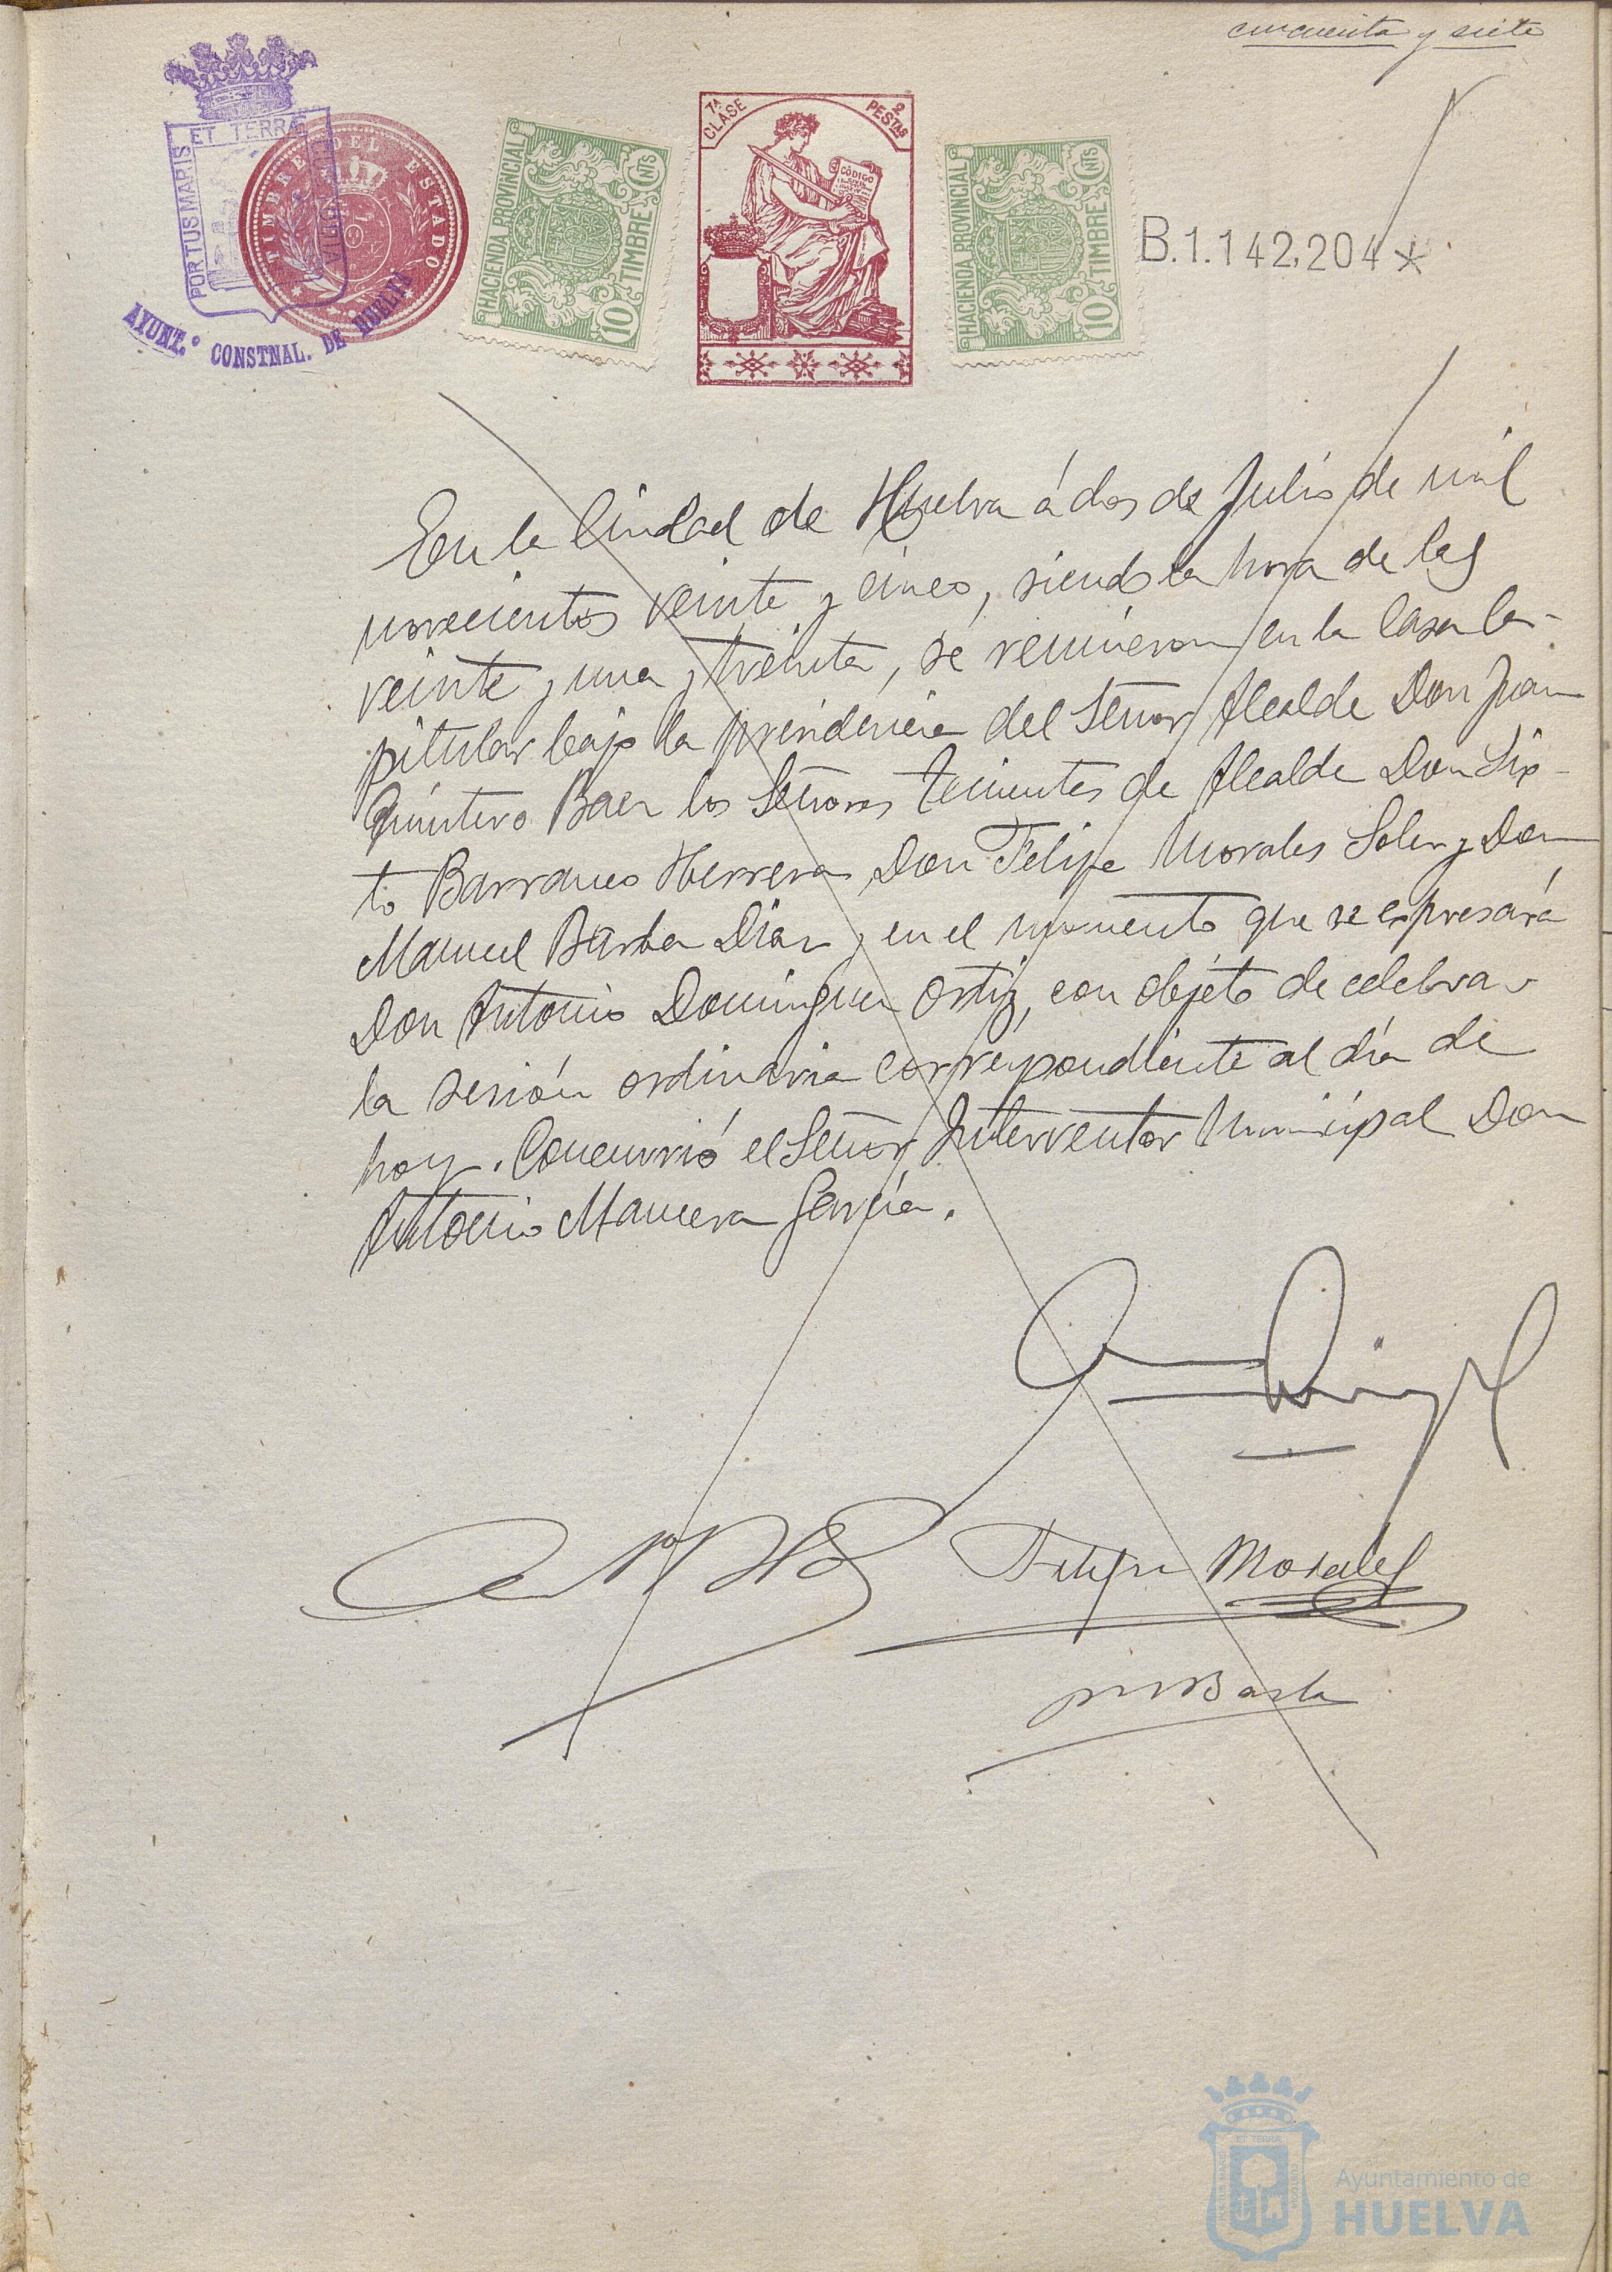 cincuenta y siete
ET TERRÆ
PORTUS MARIS
CUSTODIA
AYUNT.º CONSTNAL. DE HUELVA
TIMBRE DEL ESTADO
HACIENDA PROVINCIAL
10 TIMBRE CNTS
7ª CLASE
2 PESTAS
CÓDIGO
HACIENDA PROVINCIAL
10 TIMBRE CNTS
B.1.142,204*
En la Ciudad de Huelva á dos de Julio de mil
novecientos veinte y cinco, siendo la hora de las
veinte y una y treinta, se reunieron en la Casa Ca-
pitular bajo la presidencia del Señor Alcalde Don Juan
Quintero Baez los Señores Tenientes de Alcalde Don Six-
to Barranco Herrera Don Felipe Morales Soler y Don
Manuel Barba Diaz y en el momento que se expresará
Don Antonio Dominguez Ortiz, con objeto de celebrar
la sesión ordinaria correspondiente al día de
hoy. Concurrió el Señor Interventor Municipal Don
Antonio Mancera García.
Felipe Morales
M Barba
ET TERRA
Ayuntamiento de
HUELVA